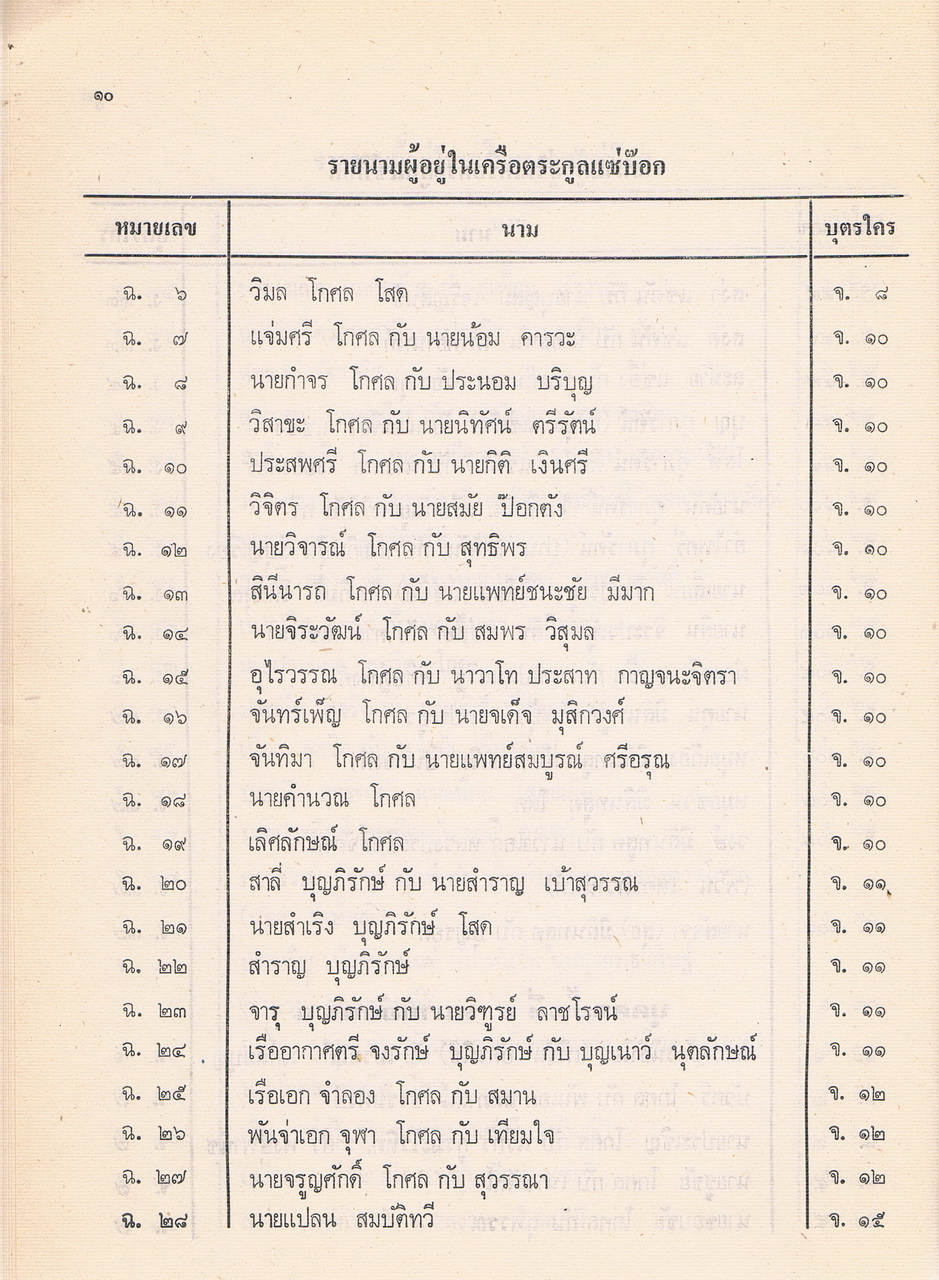 ๑๐
รายนามผู้อยู่ในเครือตระกูลแซ่บ๊อก
หมายเลข นาม บุตรใคร
ฉ. ๖ วิมล โกศล โสด จ. ๘
ฉ. ๗ แจ่มศรี โกศล กับ นายน้อม คาระวะ จ. ๑๐
ฉ. ๘ นายกำจร โกศล กับ ประนอม บริบุญ จ. ๑๐
ฉ. ๙ วิสาขะ โกศล กับ นายนิทัศน์ ตรีรัตน์ จ. ๑๐
ฉ. ๑๐ ประสพศรี โกศล กับ นายกิติ เงินศรี จ. ๑๐
ฉ. ๑๑ วิจิตร โกศล กับ นายสมัย ป๊อกตัง จ. ๑๐
ฉ. ๑๒ นายวิจารณ์ โกศล กับ สุทธิพร จ. ๑๐
ฉ. ๑๓ สินีนารถ โกศล กับ นายแพทย์ชนะชัย มีมาก จ. ๑๐
ฉ. ๑๔ นายจิระวัฒน์ โกศล กับ สมพร วิสุมล จ. ๑๐
ฉ. ๑๕ อุไรวรรณ โกศล กับ นาวาโท ประสาท กาญจนะจิตรา จ. ๑๐
ฉ. ๑๖ จันทร์เพ็ญ โกศล กับ นายจเด็จ มุสิกวงศ์ จ. ๑๐
ฉ. ๑๗ จันทิมา โกศล กับ นายแพทย์สมบูรณ์ ศรีอรุณ จ. ๑๐
ฉ. ๑๘ นายคำนวณ โกศล จ. ๑๐
ฉ. ๑๙ เลิศลักษณ์ โกศล จ. ๑๐
ฉ. ๒๐ สาลี่ บุญภิรักษ์ กับ นายสำราญ เบ้าสุวรรณ จ. ๑๑
ฉ. ๒๑ นายสำเริง บุญภิรักษ์ โสด จ. ๑๑
ฉ. ๒๒ สำราญ บุญภิรักษ์ จ. ๑๑
ฉ. ๒๓ จารุ บุญภิรักษ์ กับ นายวิฑูรย์ ลาชโรจน์ จ. ๑๑
ฉ. ๒๔ เรืออากาศตรี จงรักษ์ บุญภิรักษ์ กับ บุญเนาว์ นุตลักษณ์ จ. ๑๑
ฉ. ๒๕ เรือเอก จำลอง โกศล กับ สมาน จ. ๑๒
ฉ. ๒๖ พันจ่าเอก จุฬา โกศล กับ เทียมใจ จ. ๑๒
ฉ. ๒๗ นายจรูญศักดิ์ โกศล กับ สุวรรณา จ. ๑๒
ฉ. ๒๘ นายแปลน สมบัติทวี จ. ๑๕